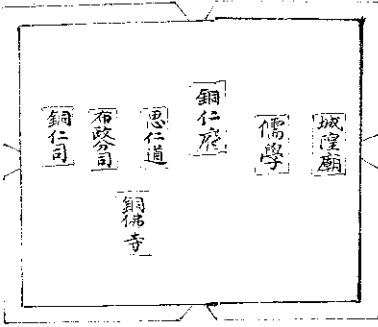 城隍廟
儒學
銅仁府
思仁道
布政分司
銅仁司
銅佛寺